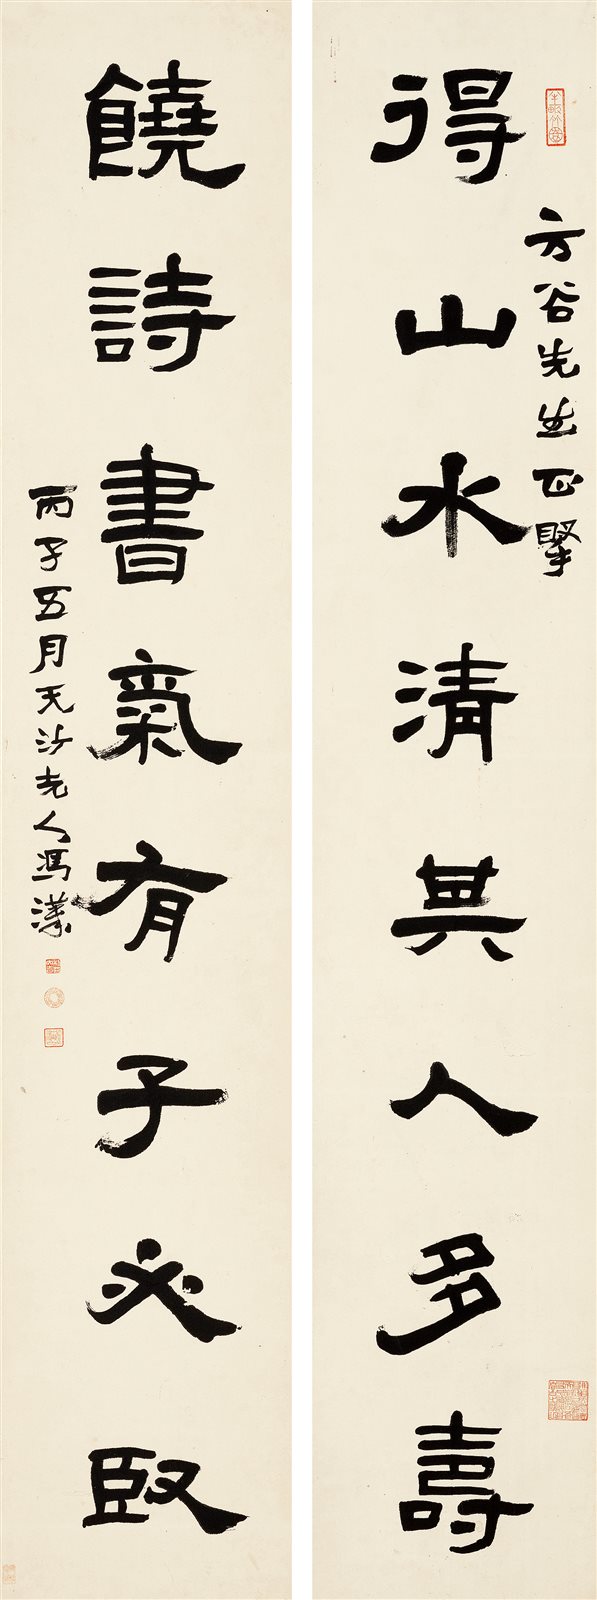 方谷先生正掔
得山水清其人多壽
饒詩書氣有子必臤
丙子五月无沙老人馮漢